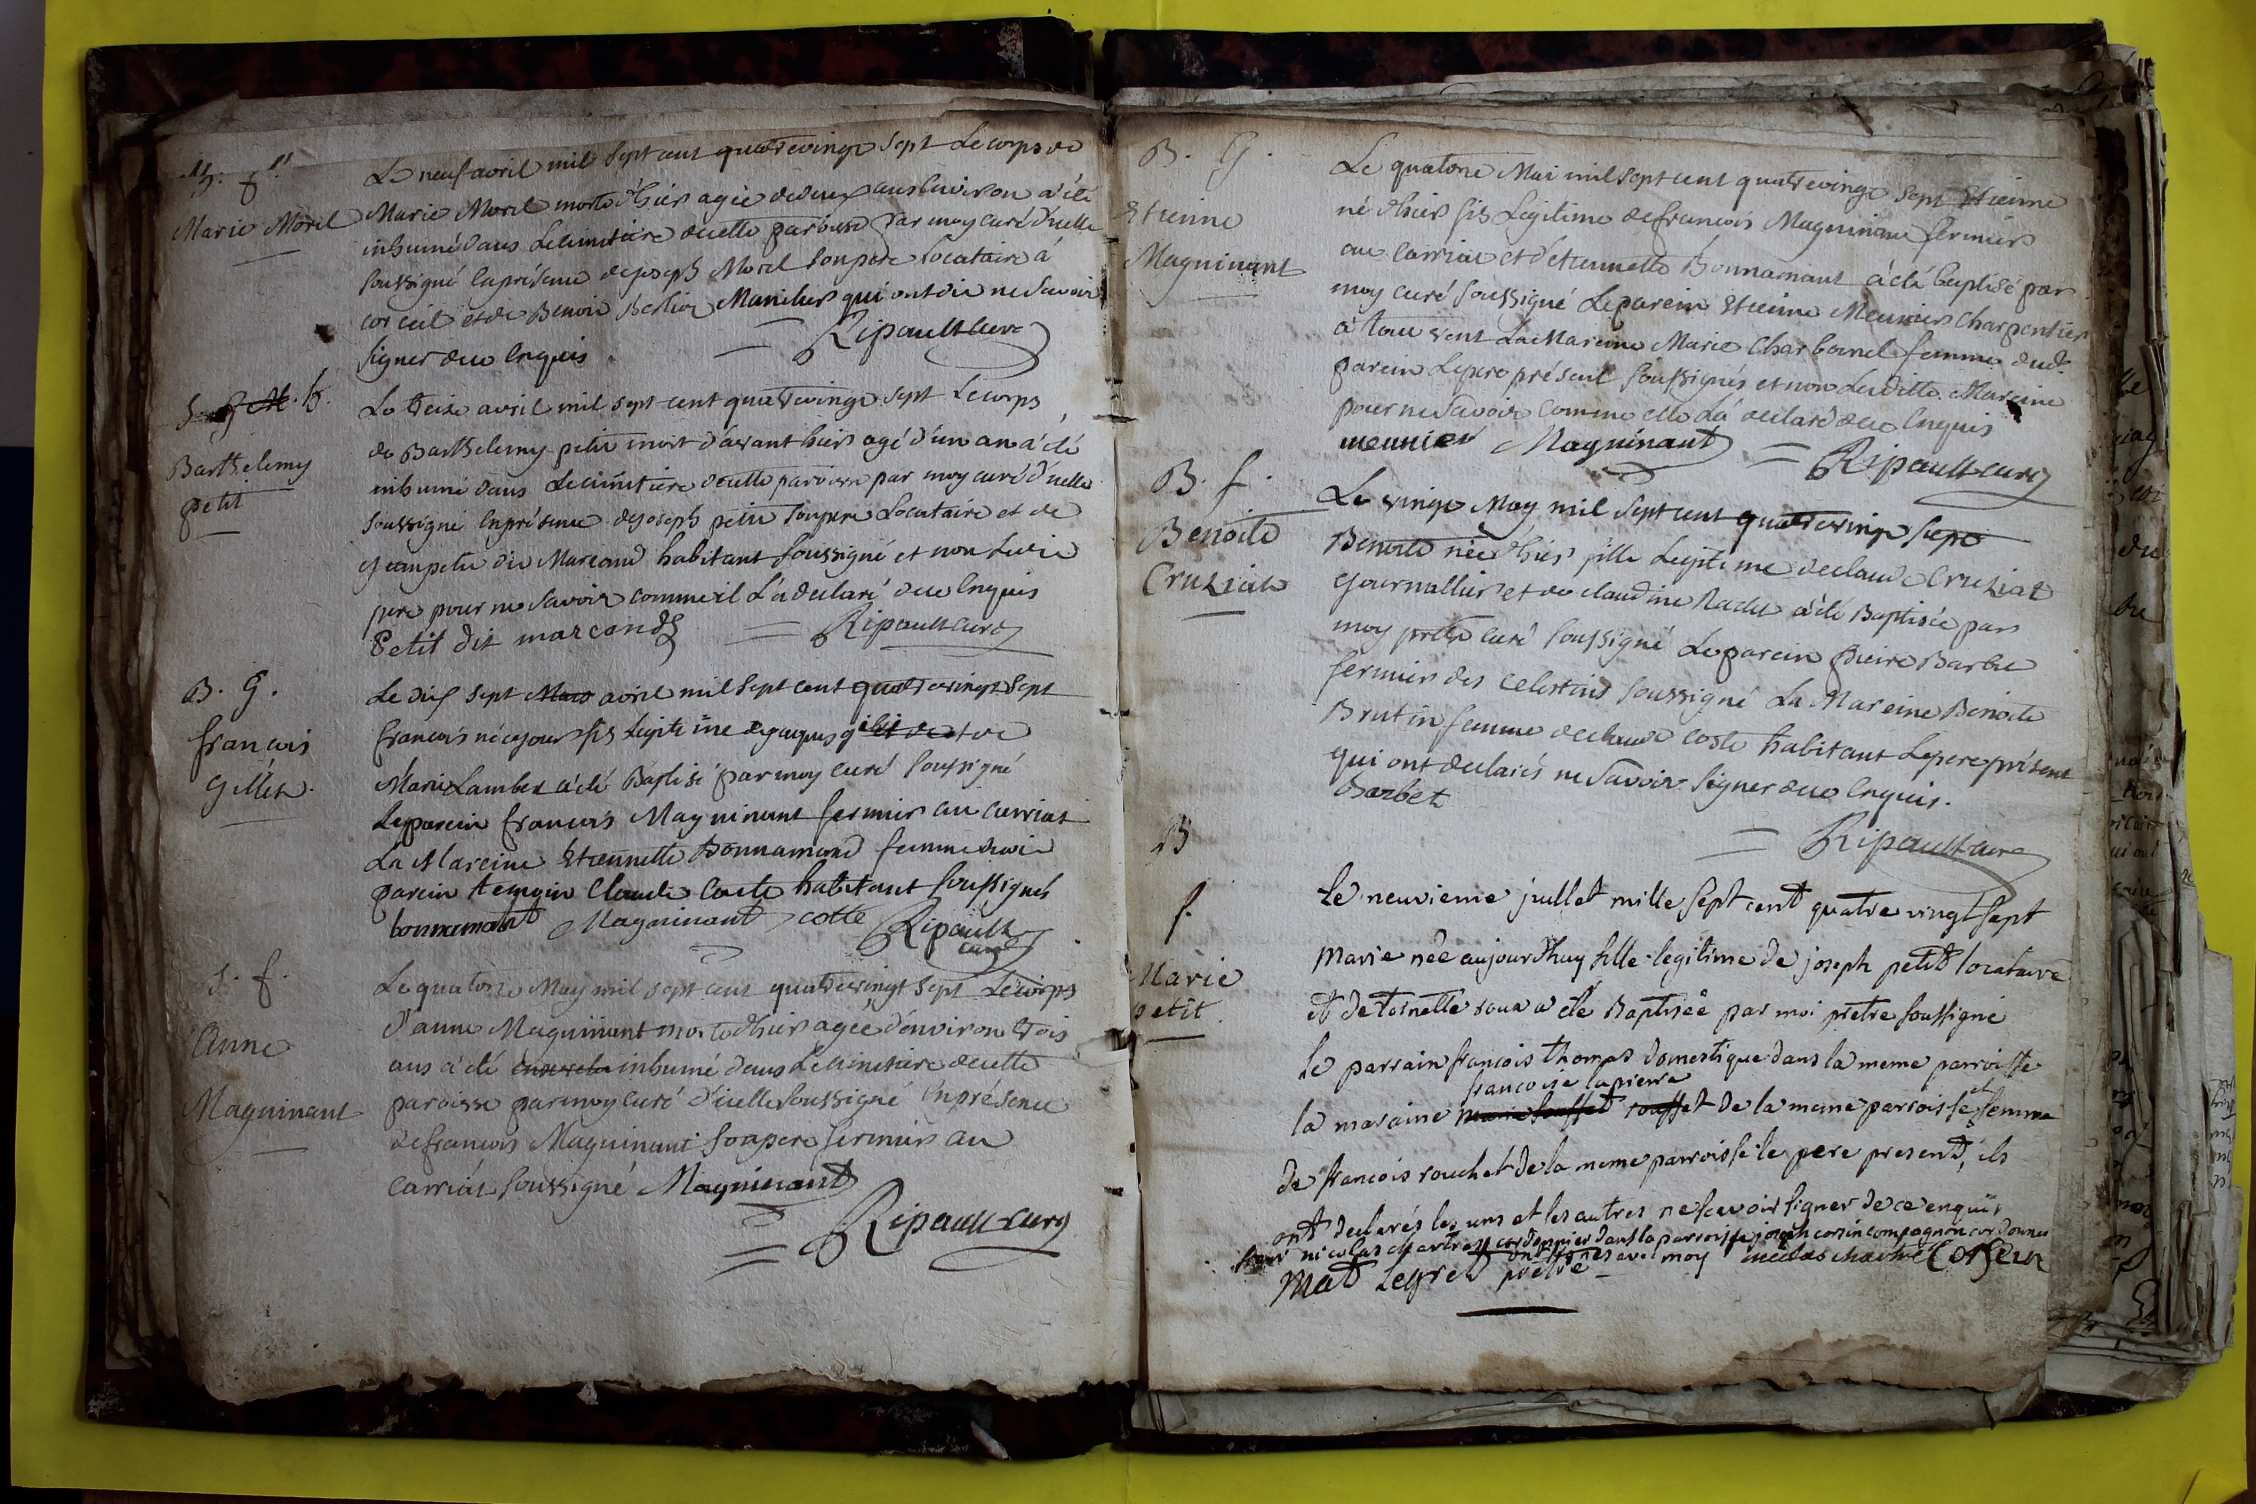 f.
Marie Morel
Le neuf avril mil sept cent quatrevingt sept Le corps de
Marie Morel morte d'hier agée de deux ans Environ a été
inhumé dans Le Cimetiere de cette paroisse par moy curé d'icelle
soussigné En présence de joseph Morel son pere Locataire à
et de Benoit Manilier qui ont dit ne Savoir
signer de ce Enquis
Ripault curé
Barthelemy
petit
Le treize avril mil sept cent quatrevingt sept Le corps
de Barthelemy petit mort d'avant hier agé d'un an a été
inhumé dans Le cimetiere de cette paroisse par moy curé d'icelle
soussigné En présence de joseph petit son pere Locataire et de
jean petit dit Marcand habitant soussigné et non Le dit
pere pour ne Savoir comme il L'a declaré de ce Enquis
Petit dit marcand
Ripault curé
B. G.
francois
Gillet.
Le dix sept Mars avril mil sept cent quatrevingt sept
francois né ce jour fils Legitime de jaques et de
Marie Lambert a été Baptisé par moy curé soussigné
Le parein francois Maguinant fermier au carriat
La Mareine Etiennette Bonnamand femme dudit
parein temoin Claude Coste habitant soussignés
bonnamant Maguinant cotte Ripault
curé
S. f.
Anne
Maguinant
Le quatorze May mil sept cent quatrevingt sept Le corps
d'anne Maguinant morte d'hier agée d'environ trois
ans a été inhumé dans Le Cimetiere de cette
paroisse par moy curé d'icelle soussigné En présence
de francois Maguinant son pere fermier au
carriat soussigné Maguinant
Ripault curé
B. G.
Etienne
Maguinant
Le quatorze Mai mil sept cent quatrevingt sept Etienne
né d'hier fils Legitime de francois Maguinant fermier
au Carriat et d'etiennette Bonnamant a été baptisé par
moy curé soussigné Le parein Etienne Meunier Charpentier
à La Mareine Marie Charbonel femme dudt
parein Le pere présent soussignés et non Laditte Mareine
pour ne Savoir Comme elle L'a declaré de ce Enquis
meunier Maguinant Ripault curé
B. f.
Benoite
Cruziat
Le vingt May mil sept cent quatrevingt sept
Benoite née d'hier fille Legitime de claude Cruziat
journallier et de claudine a été Baptisée par
moy pretre curé soussigné Le parein pierre Barbet
fermier des celestins soussigné La Mareine Benoite
Brutin femme de claude coste habitant Le pere présent
qui ont declarés ne Savoir signer de ce Enquis.
Barbet
Ripault curé
B
f.
Marie
petit
Le neuvieme juillet mille sept cent quatre vingt sept
Marie née aujourd'huy fille legitime de joseph petit locataire
et de roux a été Baptisée par moi prêtre soussigné
le parrain francois thomas domestique dans la meme parroisse
francoise lapierre
la maraine marie souffet souffet de la meme parroisse et femme
de francois rouchet de la meme parroisse le pere present, ils
ont declarés les uns et les autres ne scavoir signer de ce enquis
nicolas chartre cordonnier dans la parroisse joseph corsin compagnon cordonnier
ont signés avec moy nicolas chartre Corsein
Mat Legret prêtre